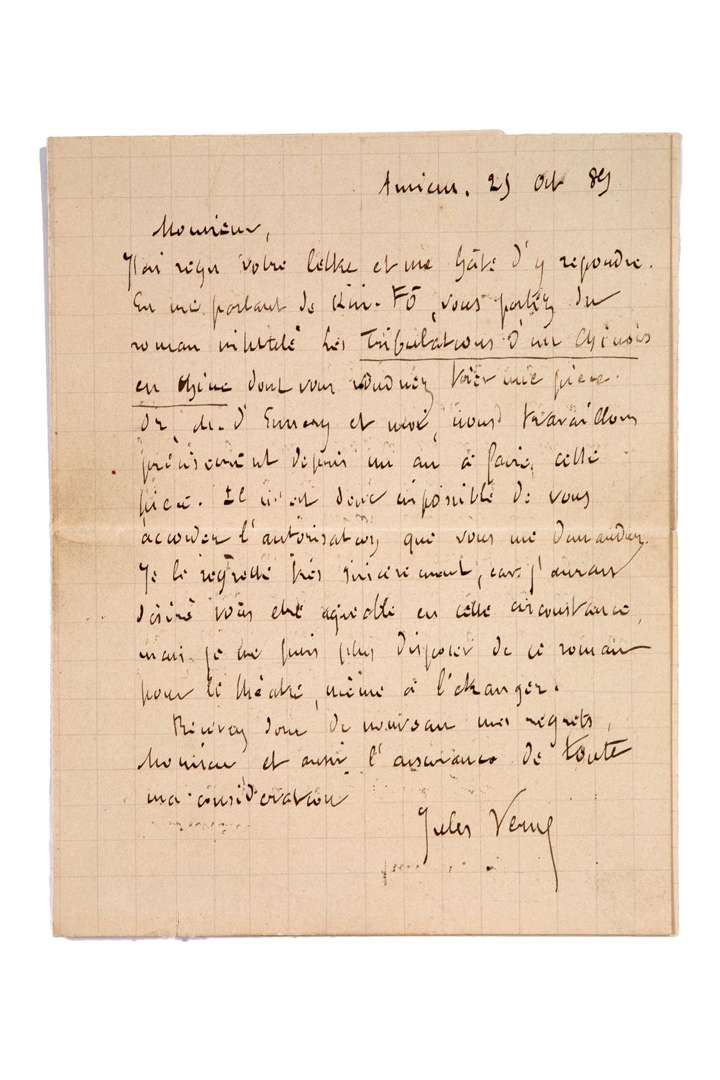 Amiens. 25 Oct 89
Monsieur,
J'ai reçu votre lettre et me hâte d'y repondre.
En me parlant de Kin-Fô, vous parlez du
roman intitulé Les Tribulations d'un Chinois
en Chine dont vous voudriez tirer une piece.
Or, M. d'Ennery et moi, nous travaillons
précisément depuis un an à faire cette
piece. Il m'est donc impossible de vous
accorder l'autorisation que vous me demandez.
Je le regrette très sincerement, car j'aurais
désiré vous être agreable en cette circonstance,
mais je ne puis plus disposer de ce roman
pour le théâtre, même à l'etranger.
Recevez donc de nouveau mes regrets,
Monsieur et aussi l'assurance de toute
ma consideration
Jules Verne